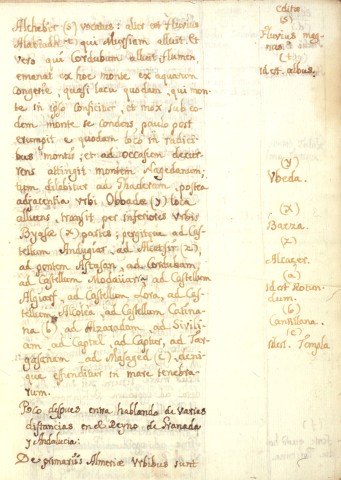 Alchebir (s) vocatus: alter est fluvius
qui Mursiam alluit. Et
vero qui Cordubam alluit flumen,
emanat ex hoc monte ex aquarum
congerie, quasi lacu quodam, qui mon-
te in ipso conficitur, et mox sub eo-
dem monte se condens, paulo post
erumpit e quodam loco in radici-
bus montis; et ad occasum decur-
rens attingit montem Nagedanum,
tum dilabitur ad Ghaderam, postea
adjacentia urbi Obbadae (y) loca
alluens, transit per inferiores urbis
Byasae (x) partes; pergitque ad Cas-
tellum Andugier, ad Alcasir (z),
ad pontem Astasan, ad Cordubam,
ad Castellum ad Castellum
ad Castellum Lora, ad Cas-
tellum Alcolea, ad Castellum Catina-
na (b), ad Alzaradam, ad Sivili-
am ad Captel, ad Captur, ad Tar-
ad Masaged (c), deni-
que effunditur in mare tenebra-
rum.
Poco despues entra hablando de varias
distancias en el Reyno de Granada
y Andalucia:
De primariis Almeriae Urbibus sunt
editio
(s)
Fluvius mag-
nus
(t)
Id est albus.
(y)
Ubeda.
(x)
Baeza.
(z)
Alcazer.
(a)
Id est Roton-
dum.
(b)
Cantillana.
(c)
Idest. Templa